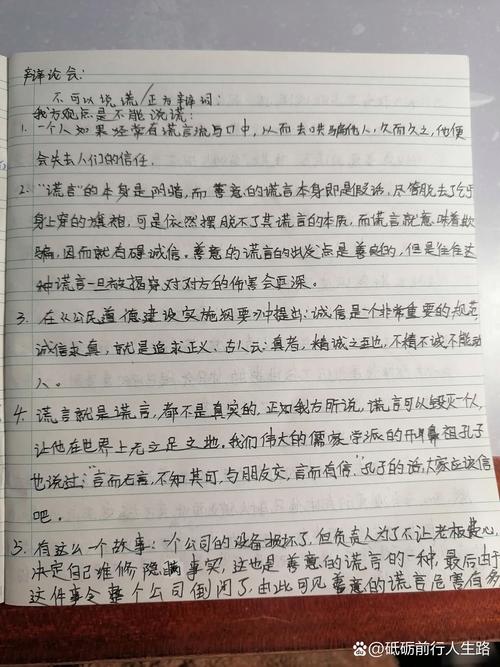 辩论会:
不可以说谎/正方辩词:
我方观点是不能说谎:
1. 一个人如果经常有谎言流与口中,从而去哄骗他人,久而久之,他便
会失去人们的信任.
2. "谎言"的本身是阴暗,而善意的谎言本身即是假话,尽管脱去了
身上穿的旗袍,可是依然摆脱不了其谎言的本质,而谎言就意味着欺
骗,因而就有碍诚信。善意的谎言的出发点是善良的,但是往往这
种谎言一旦被揭穿对对方的伤害会更深。
3. 在《公民道德建设实施纲要》中提出:诚信是一个非常重要的规范
诚信求真,就是追求正义、古人云:真者,精诚之至也,不精不诚不能动
人。
4. 谎言就是谎言,都不是真实的,正如我方所说,谎言可以毁灭一个人,
让他在世界上无立足之地.我们伟大的儒家学派的开鼻祖孔子
也说过:"言而无言,不知其可,与朋友交,言而有信.孔子的话,大家应该信
吧。
5. 有这么一个故事:一个公司的设备损坏了,但负责人为了不让老板费心,
决定自己维修,隐瞒事实,这也是善意的谎言的一种,最后由
这件事令整个公司倒闭了,由此可见善意的谎言危害有多
@砥砺前行人生路